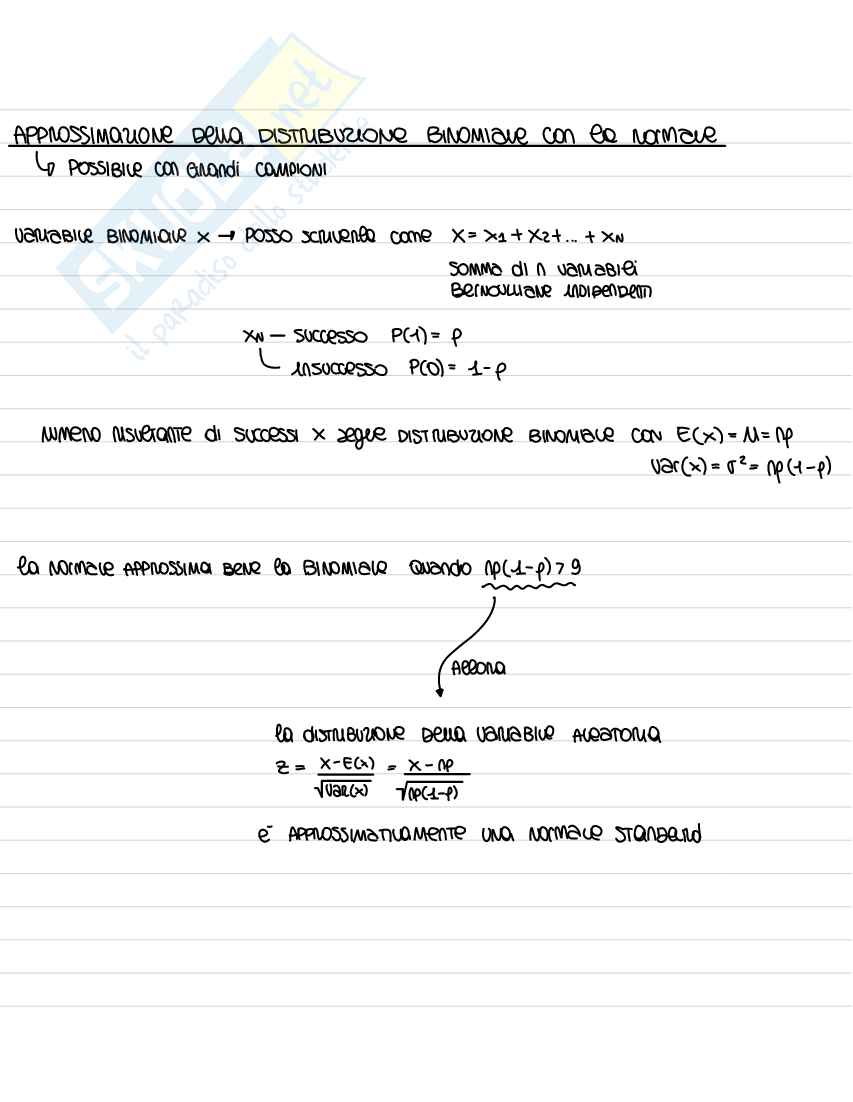 APPROSSIMAZIONE DELLA DISTRIBUZIONE BINOMIALE CON la NORMALE
↳ POSSIBILE CON GRANDI CAMPIONI
SKUOLA.net
il paradiso dello studente
VARIABILE BINOMIALE X → POSSO SCRIVERLA come X = X1 + X2 + ... + XN
SOMMA di n VARIABILI
BERNOULLIANE INDIPENDENTI
XN — SUCCESSO P(1) = P
INSUCCESSO P(0) = 1-P
NUMERO RISULTANTE di SUCCESSI X segue DISTRIBUZIONE BINOMIALE CON E(X) = M = np
Var(x) = σ² = np(1-p)
la NORMALE APPROSSIMA BENE la BINOMIALE QUANDO np(1-p) > 9
Allora
la DISTRIBUZIONE DELLA VARIABILE ALEATORIA
Z = X-E(X) / √Var(x) = X-np / √np(1-p)
è APPROSSIMATIVAMENTE UNA NORMALE STANDARD